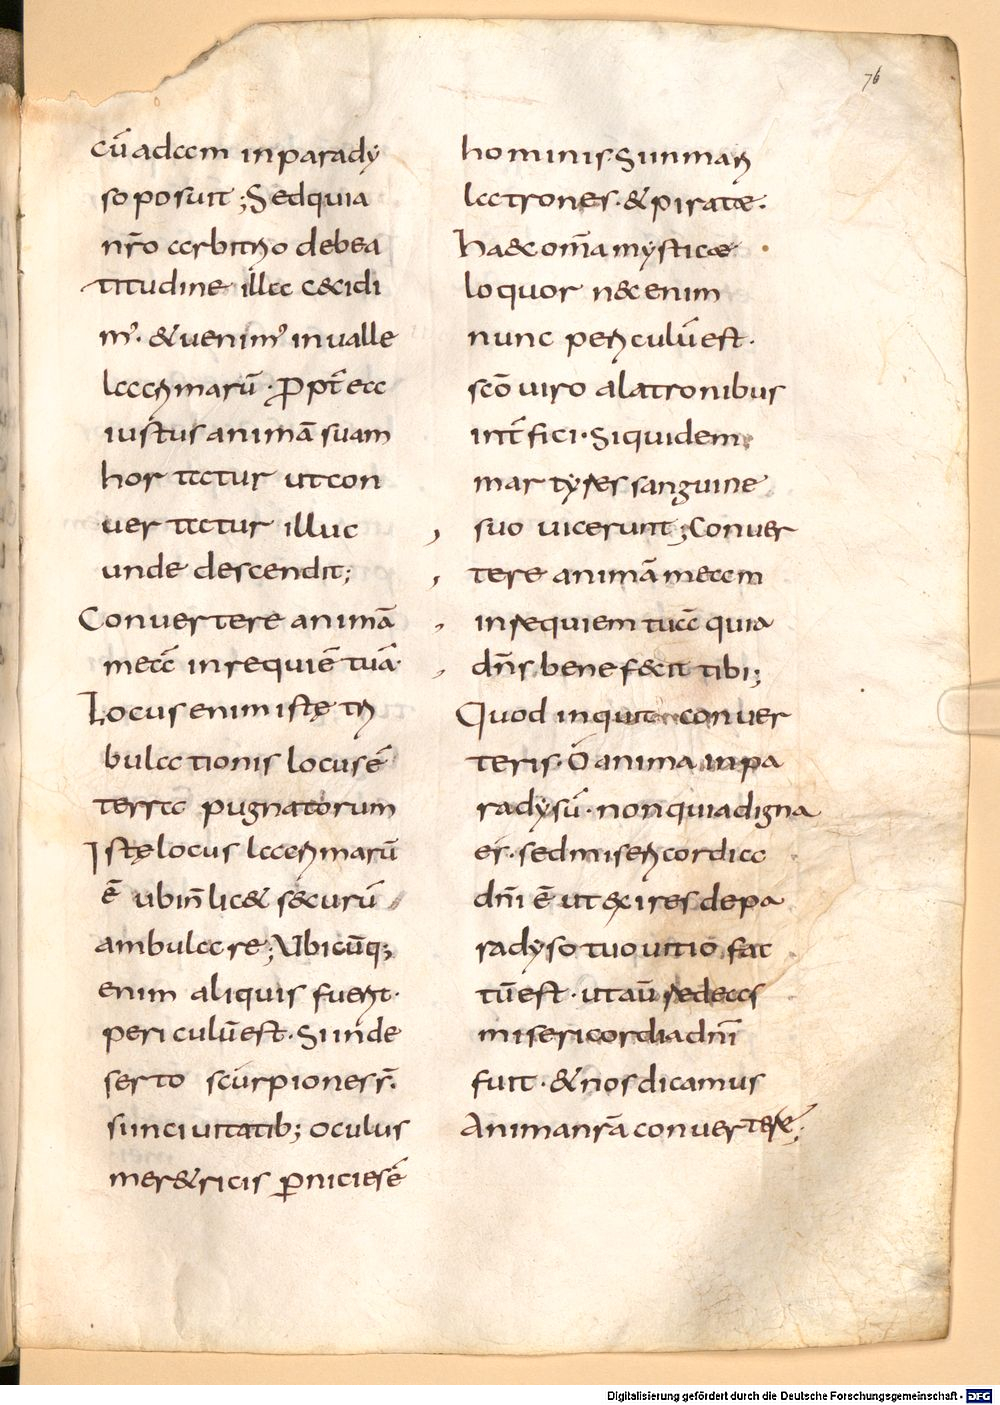 76
cū adam inparady
soposuit ; Sedquia
nr̄o arbitrio debea
titudine illa c&cidi
m᾿. &uenim᾿ inualle
lacrimarū · Ꝓpt̄ ea
iustus animā suam
hortatur utcon
uertatur illuc
unde descendit;
Conuertere animā
meā inrequiē tuā·
Locus enim istę tri
bulationis locus ē
terra pugnatorum
Istę locus lacrimarū
ē ubin̄ lic& sécurū
ambulare; Ubicūq;
enim aliquis fuerit·
periculū est· Si inde
serto scurpiones s̄.
si inciuitatib; oculus
mer&ricis ꝑnicies ē
hominis· Si in mari
latrones· & piratæ·
ha&c om̄a mysticæ
loquor n&c enim
nunc periculū est·
scō uiro alatronibus
int̄fici· Siquidem
martyres sanguine
suo uicerunt; Conuer
tere animā meam
in requiem tuā quia
dn̄s benefecit tibi;
Quod inquit conuer
teris· O anima inpa
radysū· non quia digna
es· sed misericordia
dn̄i ē ut exires depa
radyso tuo uitio fac
tū est· ut aū redeas
misericordia dn̄i
fuit· & nos dicamus
Anima nr̄a conuertere;
Digitalisierung gefördert durch die Deutsche Forschungsgemeinschaft - DFG